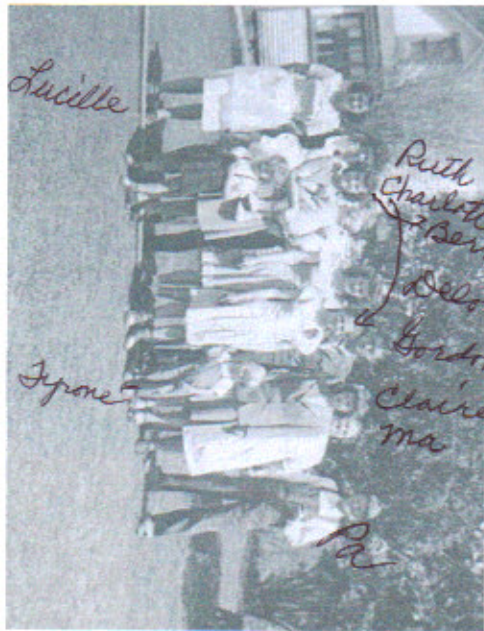 Lucille
Ruth
Charlott
Ber
Delo
Gordon
Tyrone
Claire
Ma
Pa